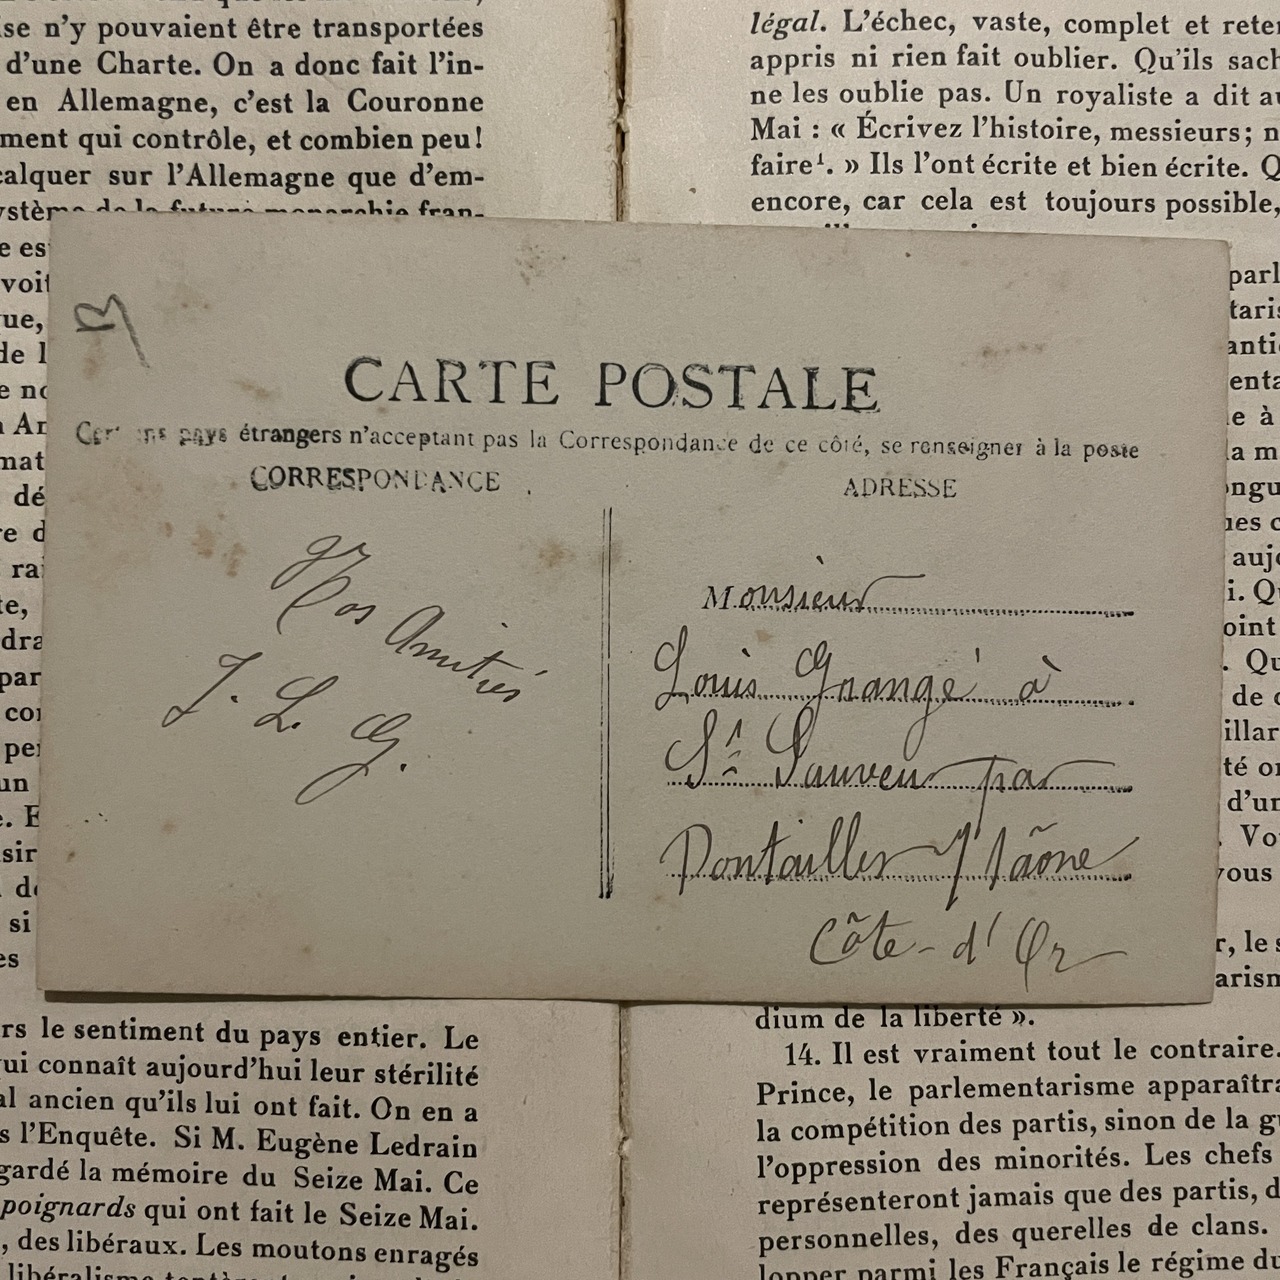 se n'y pouvaient être transportées
d'une Charte. On a donc fait l'in-
en Allemagne, c'est la Couronne
ment qui contrôle, et combien peu!
calquer sur l'Allemagne que d'em-
système de la future monarchie fran-
légal. L'échec, vaste, complet et reten
appris ni rien fait oublier. Qu'ils sach
ne les oublie pas. Un royaliste a dit au
Mai : « Écrivez l'histoire, messieurs; n
faire¹. » Ils l'ont écrite et bien écrite. Q
encore, car cela est toujours possible,
e es
voit
ue,
de l
e no
n Ar
mat
dé
re d
rai
te,
dra
par
con
per
un
e. E
sir
de
si
es
CARTE POSTALE
Certains pays étrangers n'acceptant pas la Correspondance de ce côté, se renseigner à la poste
CORRESPONDANCE
ADRESSE
Nos Amitiés
J. L. G.
Monsieur
Louis Grangé à
St Sauveur par
Pontailler s/ Saône
Côte-d'Or
parl
taris
anti
enta
e à
la m
ongu
ues c
aujo
i. Qu
oint
. Qu
de c
illar
té on
d'un
. Vo
vous
r, le s
arism
rs le sentiment du pays entier. Le
qui connaît aujourd'hui leur stérilité
al ancien qu'ils lui ont fait. On en a
s l'Enquête. Si M. Eugène Ledrain
gardé la mémoire du Seize Mai. Ce
poignards qui ont fait le Seize Mai.
, des libéraux. Les moutons enragés
libéralisme
dium de la liberté ».
14. Il est vraiment tout le contraire.
Prince, le parlementarisme apparaîtra
la compétition des partis, sinon de la gu
l'oppression des minorités. Les chefs
représenteront jamais que des partis, d
personnelles, des querelles de clans.
lopper parmi les Français le régime du